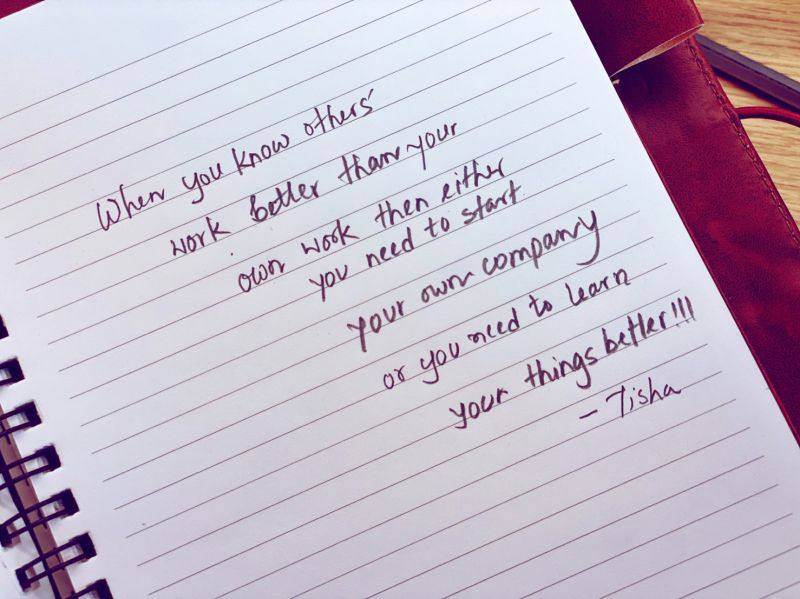 When you know others'
work better than your
own work then either
you need to start
your own company
or you need to learn
your things better!!!
- Tisha